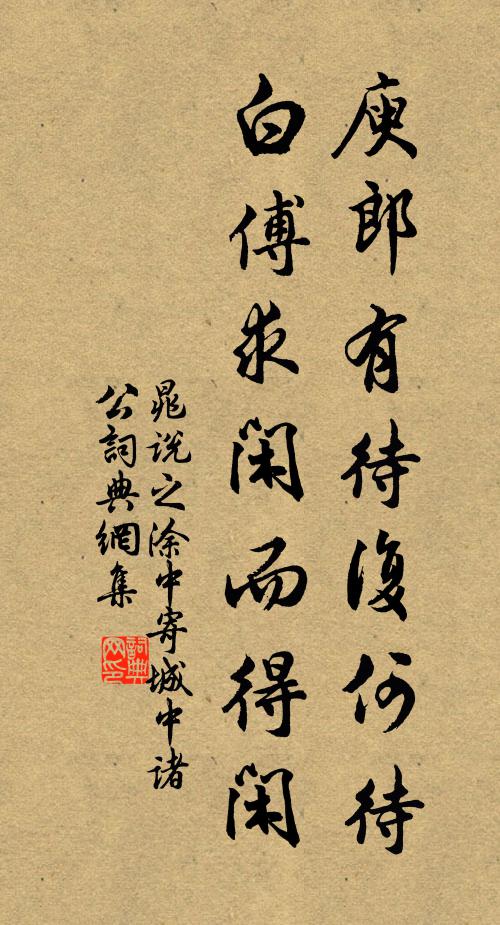 庾郎有待復何待
白傅求閑而得閑
晁說之涂中寄城中諸
公詞典網集
詞典
网印